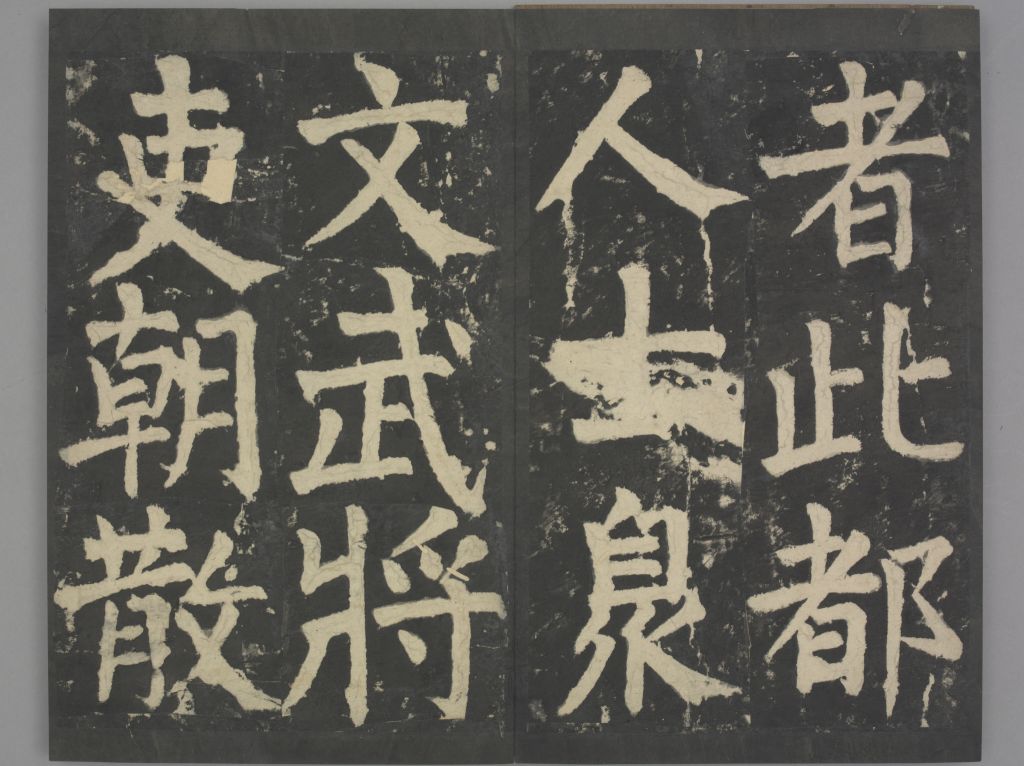 者此都
人士臮
文武將
吏朝散